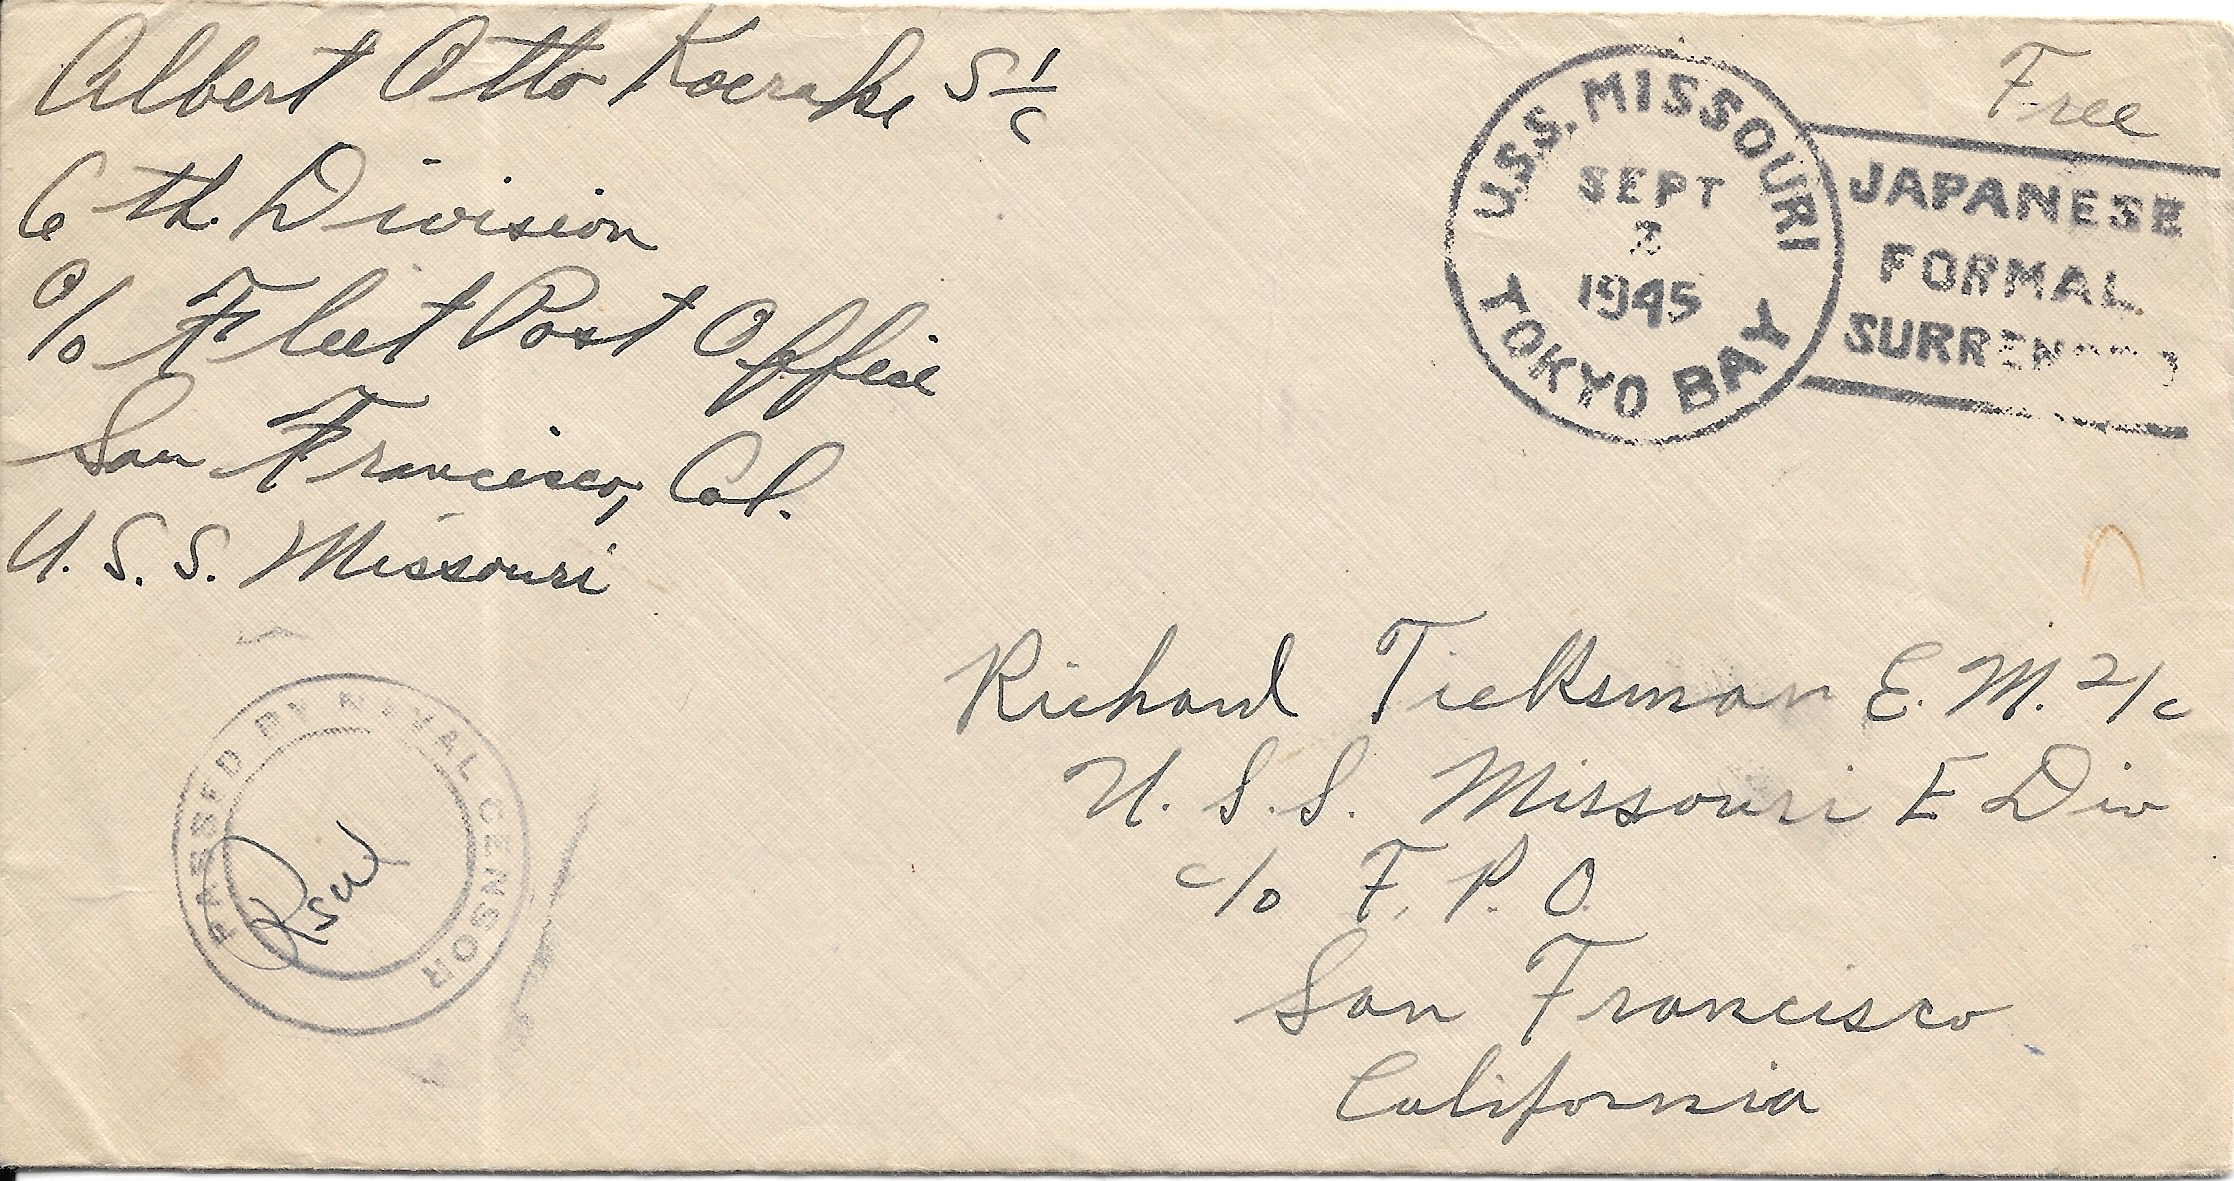 Albert Otto Koerake S 1/c
6th. Division
c/o Fleet Post Office
San Francisco, Cal.
U.S.S. Missouri
Free
U.S.S. MISSOURI
SEPT
1945
TOKYO BAY
JAPANESE
FORMAL
SURRENDER
PASSED BY NAVAL CENSOR
Richard Tieksman E.M. 2/c
U.S.S. Missouri E Div
c/o F.P.O.
San Francisco
California